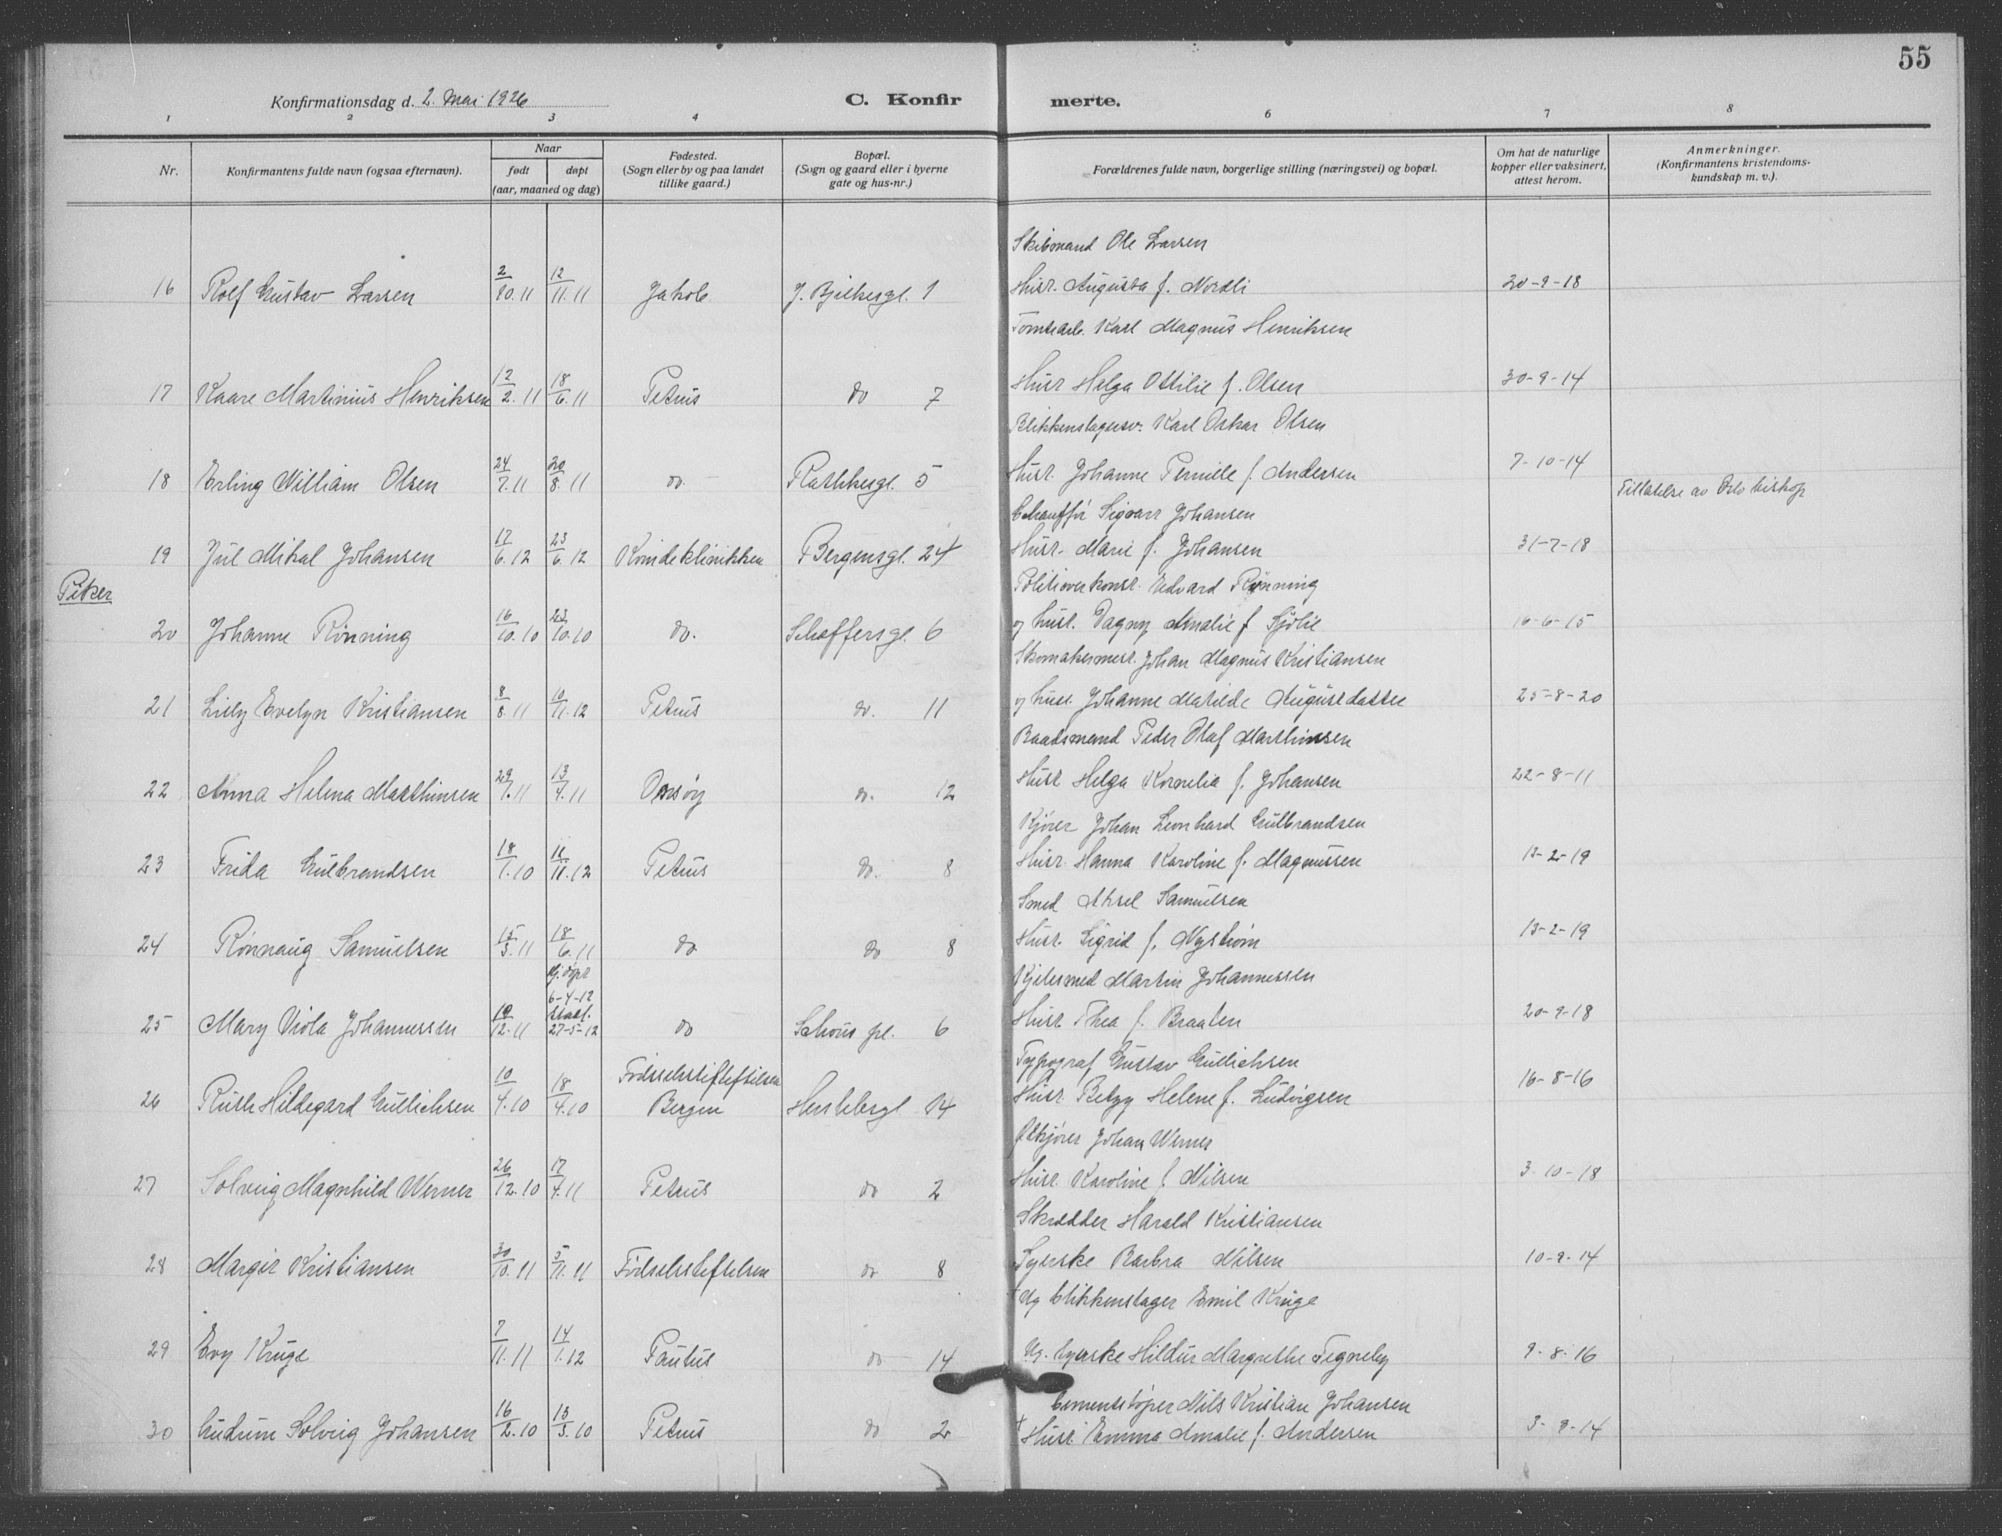 55
Konfirmationsdag d. 2. Mai 1926
C. Konfirmerte.
1 2 3 4 6 7 8
Nr.
Konfirmantens fulde navn (ogsaa efternavn).
Naar
født døpt
(aar, maaned og dag)
Fødested.
(Sogn eller by og paa landet
tillike gaard.)
Bopæl.
(Sogn og gaard eller i byerne
gate og hus-nr.)
Forældrenes fulde navn, borgerlige stilling (næringsvei) og bopæl.
Om hat de naturlige
kopper eller vaksinert,
attest herom.
Anmerkninger.
(Konfirmantens kristendoms-
kundskap m. v.).
Skibsmand Ole Larsen
16 Rolf Gustav Larsen 2/10.11 12/11.11 Jakob J. Bjelkesgt. 1 Husr. Augusta f. Nordli 20-9-18
Tomtearb. Karl Magnus Henriksen
17 Kaare Martinius Henriksen 12/2.11 18/6.11 Petrus do 7 Husr Helga Ottilie f. Olsen 30-9-14
Blikkenslagersv. Karl Oskar Olsen
18 Erling William Olsen 24/7.11 20/8.11 do. Rathkesgt. 5 Husr. Johanne Pernille f. Andersen 7-10-14
Tillatelse av Oslo biskop
Chauffør Sigvart Johansen
19 Jul Mikal Johansen 17/6.12 23/6.12 Kvindeklinikken Bergensgt. 24 Husr. Marie f. Johansen 31-7-18
Piker
Politioverkonst. Edvard Rønning
20 Johanne Rønning 16/10.10 23/10.10 do. Schoffersgt. 6 og hust. Dagny Amalie f. Sjølie 16-6-15
Skomakermest. Johan Magnus Kristiansen
21 Lisly Evelyn Kristiansen 8/8.11 10/11.12 Petrus do. 11 og hust. Johanne Matilde Augustdatter 25-8-20
Baadsmand Peder Olaf Marthinsen
22 Anna Helena Marthinsen 29/1.11 13/4.11 Onsøy do. 12 Husr Helga Kornelia f. Johansen 22-8-11
Kjører Johan Leonhard Gulbrandsen
23 Frida Gulbrandsen 18/1.10 16/11.12 Petrus do. 8 Husr. Hanna Karoline f. Magnussen 13-2-19
Smed Aksel Samuelsen
24 Rønnaug Samuelsen 15/3.11 18/6.11 do do 8 Husr. Sigrid f. Nystrøm 13-2-19
Kjelesmed Martin Johannessen
hj.døpt
6-4-12
stadf.
25 Mary Viola Johannessen 19/12.11 27-5-12 do Schous pl. 6 Husr. Thea f. Braaten 20-9-18
Typograf Gustav Gullichsen
Fødselsstiftelsen
26 Ruth Hildegard Gullichsen 10/4.10 18/4.10 Bergen Herslebsgt 14 Husr Betzy Helene f. Ludvigsen 16-8-16
Ølkjører Johan Werner
27 Solveig Magnhild Werner 26/12.10 17/4.11 Petrus do 2 Husr. Karoline f. Nilsen 3-10-18
Skrædder Harald Kristiansen
28 Margit Kristiansen 30/10.11 5/11.11 Fødselsstiftelsen do 8 Syerske Barbra Nilsen 10-9-14
Ug blikkenslager Emil Kruge
29 Evy Kruge 7/11.11 14/1.12 Paulus do 14 Ug. syerske Hildur Margrethe Tegneby 9-8-16
Cementstøper Nils Kristian Johansen
30 Gudrun Solveig Johansen 16/2.10 13/3.10 Petrus do 2 Husr. Emma Amalie f. Andersen 3-9-14